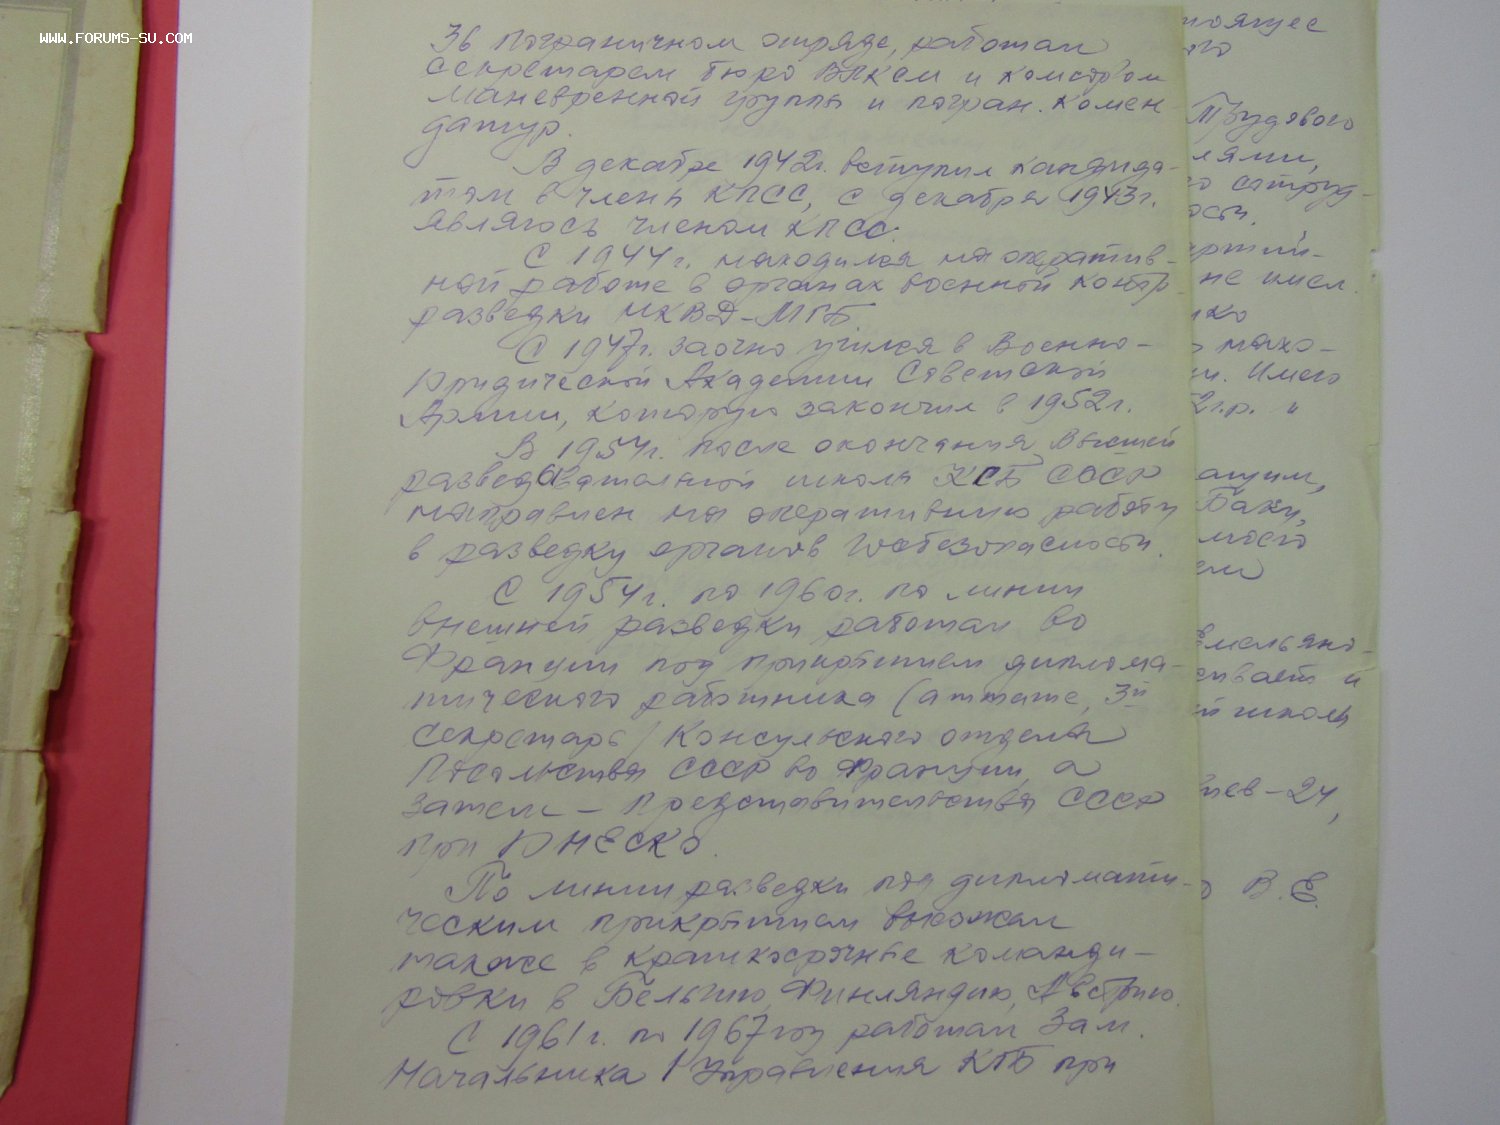 WWW.FORUMS-SU.COM
36 пограничном отряде, работал
секретарем бюро ВЛКСМ и комсоргом
маневренной группы и погран. комен-
датур.
В декабре 1942г. вступил кандида-
том в члены КПСС, с декабря 1943г.
являюсь членом КПСС.
С 1944г. находился на оператив-
ной работе в органах военной контр-
разведки НКВД-МГБ.
С 1947г. заочно учился в Военно-
Юридической Академии Советской
Армии, которую закончил в 1952г.
В 1954г. после окончания Высшей
разведывательной школы КГБ СССР
направлен на оперативную работу
в разведку органов Госбезопасности.
С 1954г. по 1960г. по линии
внешней разведки работал во
Франции под прикрытием диплома-
тического работника (атташе, 3й
секретарь) Консульского отдела
Посольства СССР во Франции, а
затем – Представительства СССР
при ЮНЕСКО.
По линии разведки под дипломати-
ческим прикрытием выезжал
также в краткосрочные команди-
ровки в Бельгию, Финляндию, Австрию.
С 1961г. по 1967год работал Зам.
Начальника 1 Управления КГБ при
Трудового
лями,
сотруд-
ости.
артий-
не имел
нахо-
Имею
2г.р. и
ащим,
Баку,
моего
Емельяно-
ивает и
й школы
иев-24,
В.Е.